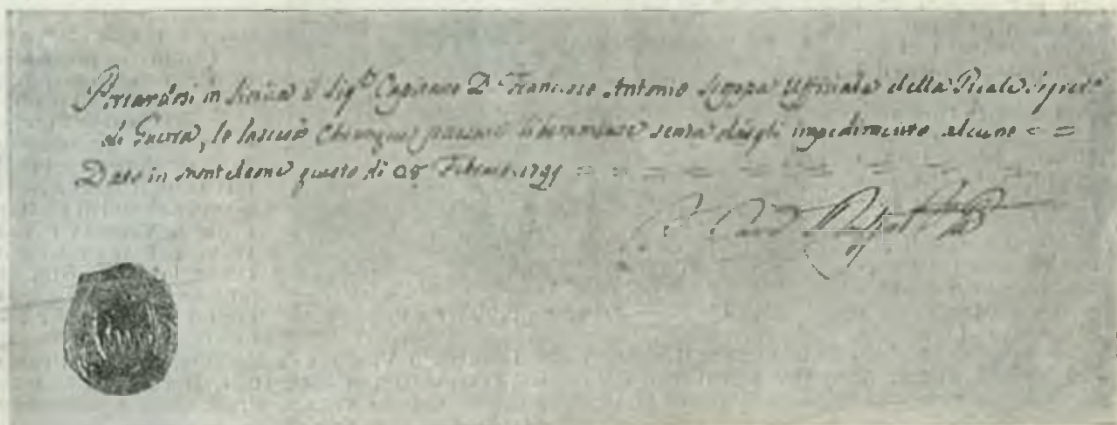 Portandosi in Sicilia il Sig.r Capitano D. Francesco Antonio Ufficiale della Reale
di Guerra, lo lascierà chiunque passare liberamente senza dargli impedimento alcuno = =
Dato in Monteleone questo dì 28 Febraro 1799 = = = = = = =